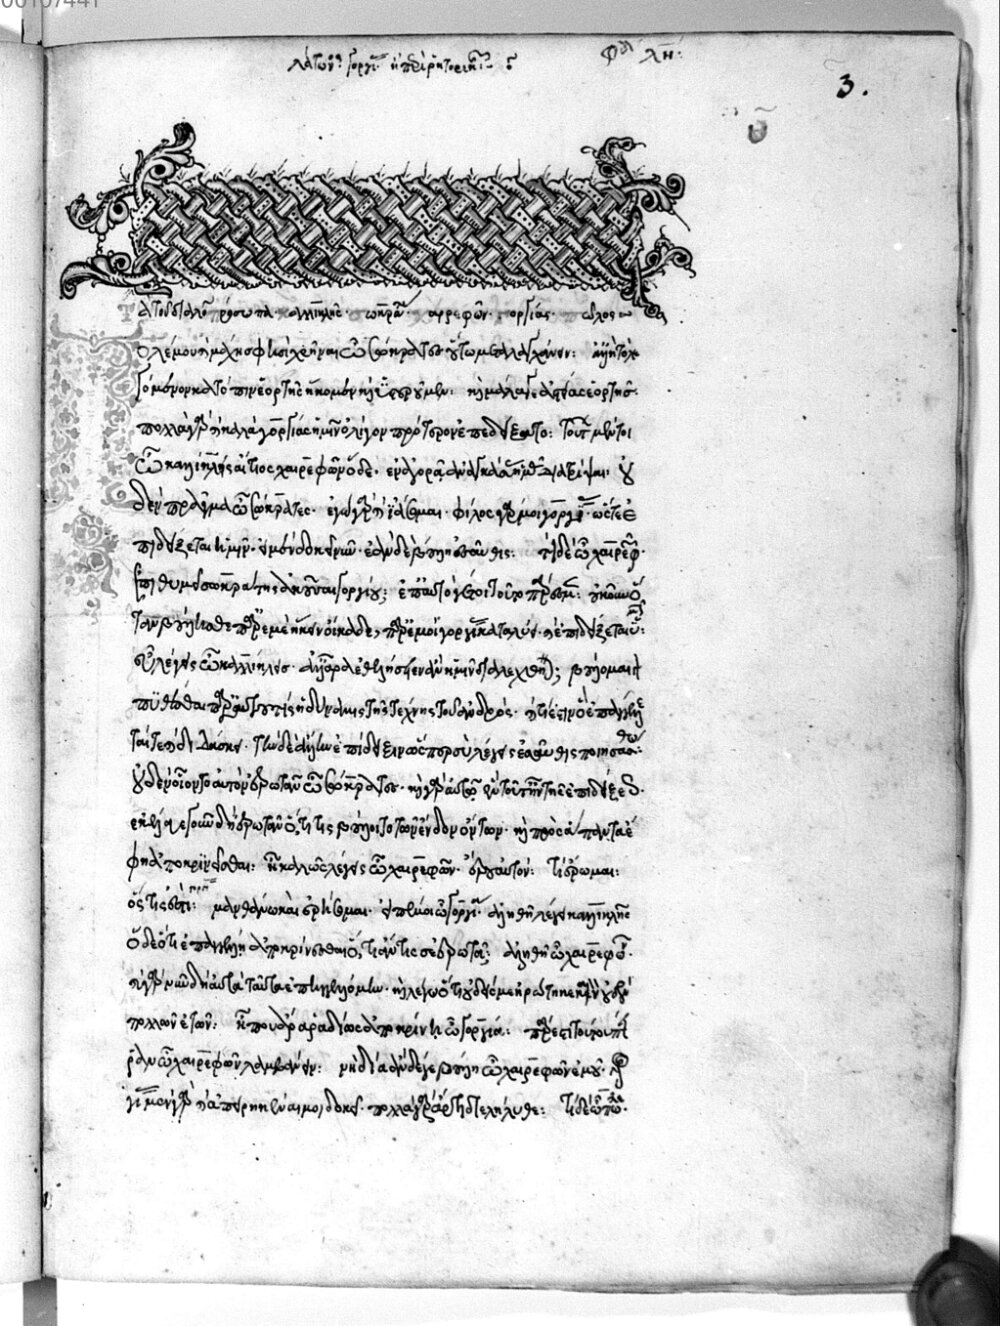 λάτων· γοργίας ἢ περὶ ῥητορικῆς
3.
Τὰ τοῦ διαλόγου πρόσωπα· καλλικλῆς· σωκράτης· χαιρεφῶν· γοργίας· πῶλος
ολέμου καὶ μάχης φασὶ χρῆναι ὦ σώκρατες οὕτω μεταλαγχάνειν: ἀλλ' ἢ τὸ λε
γόμενον κατόπιν ἑορτῆς ἥκομεν καὶ ὑστεροῦμεν: καὶ μάλα γε ἀστείας ἑορτῆς·
πολλὰ γὰρ καὶ καλὰ γοργίας ἡμῖν ὀλίγον πρότερον ἐπεδείξατο: τούτων μέντοι
ὦ καλλίκλεις αἴτιος χαιρεφῶν ὅδε· ἐν ἀγορᾷ ἀναγκάσας ἡμᾶς διατρίψαι· οὐ
δὲν πρᾶγμα ὦ σώκρατες· ἐγὼ γὰρ καὶ ἰάσομαι· φίλος γάρ μοι γοργίας· ὥστε ἐ
πιδείξεται ἡμῖν· εἰ μὲν δοκεῖ νῦν· ἐὰν δὲ βούλῃ εἰσαῦθις: τί δὲ ὦ χαιρεφῶν·
ἐπιθυμεῖ σωκράτης ἀκοῦσαι γοργίου; ἐπ' αὐτό γέ τοι τοῦτο πάρεσμεν: οὐκοῦν ὅ
ταν βούλησθε παρ' ἐμὲ ἥκειν οἴκαδε, παρ' ἐμοὶ γὰρ γοργίας καταλύει· καὶ ἐπιδείξεται ὑμῖν:
εὖ λέγεις ὦ καλλίκλεις· ἀλλ' ἆρα ἐθελήσειεν ἂν ἡμῖν διαλεχθῆναι; βούλομαι γὰρ
πυθέσθαι παρ' αὐτοῦ τίς ἡ δύναμις τῆς τέχνης τοῦ ἀνδρός· καὶ τί ἐστιν ὃ ἐπαγγέλλε
ταί τε καὶ διδάσκει· τὴν δὲ ἄλλην ἐπίδειξιν ὥσπερ σὺ λέγεις εἰσαῦθις ποιησάσθω:
οὐδὲν οἷον τὸ αὐτὸν ἐρωτᾶν ὦ σώκρατες· καὶ γὰρ αὐτῷ ἓν τοῦτ' ἦν τῆς ἐπιδείξεως·
ἐκέλευε γοῦν δὴ ἐρωτᾶν ὅ, τι τις βούλοιτο τῶν ἔνδον ὄντων· καὶ πρὸς ἅπαντα ἔ
φη ἀποκρινεῖσθαι: ἦ καλῶς λέγεις ὦ χαιρεφῶν· ἐροῦ αὐτόν: τί ἔρωμαι:
ὅστις ἐστί: μανθάνω καὶ ἐρήσομαι· εἰπέ μοι ὦ γοργία· ἀληθῆ λέγει καλλικλῆς
ὅδε ὅτι ἐπαγγέλλῃ ἀποκρίνεσθαι ὅ, τι ἄν τις σε ἐρωτᾷ; ἀληθῆ ὦ χαιρεφῶν·
καὶ γὰρ νῦν δὴ αὐτὰ ταῦτα ἐπηγγελλόμην· καὶ λέγω ὅτι οὐδείς με ἠρώτηκε καινὸν οὐδὲν
πολλῶν ἐτῶν: ἦ που ἄρα ῥᾳδίως ἀποκρίνῃ ὦ γοργία: πάρεστι τούτου πεῖ
ραν ὦ χαιρεφῶν λαμβάνειν: νὴ δία ἂν δέ γε βούλῃ ὦ χαιρεφῶν ἐμοῦ· γορ
γίας μὲν γὰρ καὶ ἀπειρηκέναι μοι δοκεῖ· πολλὰ γὰρ ἄρτι διελήλυθε: τί δὲ ὦ πῶλε·